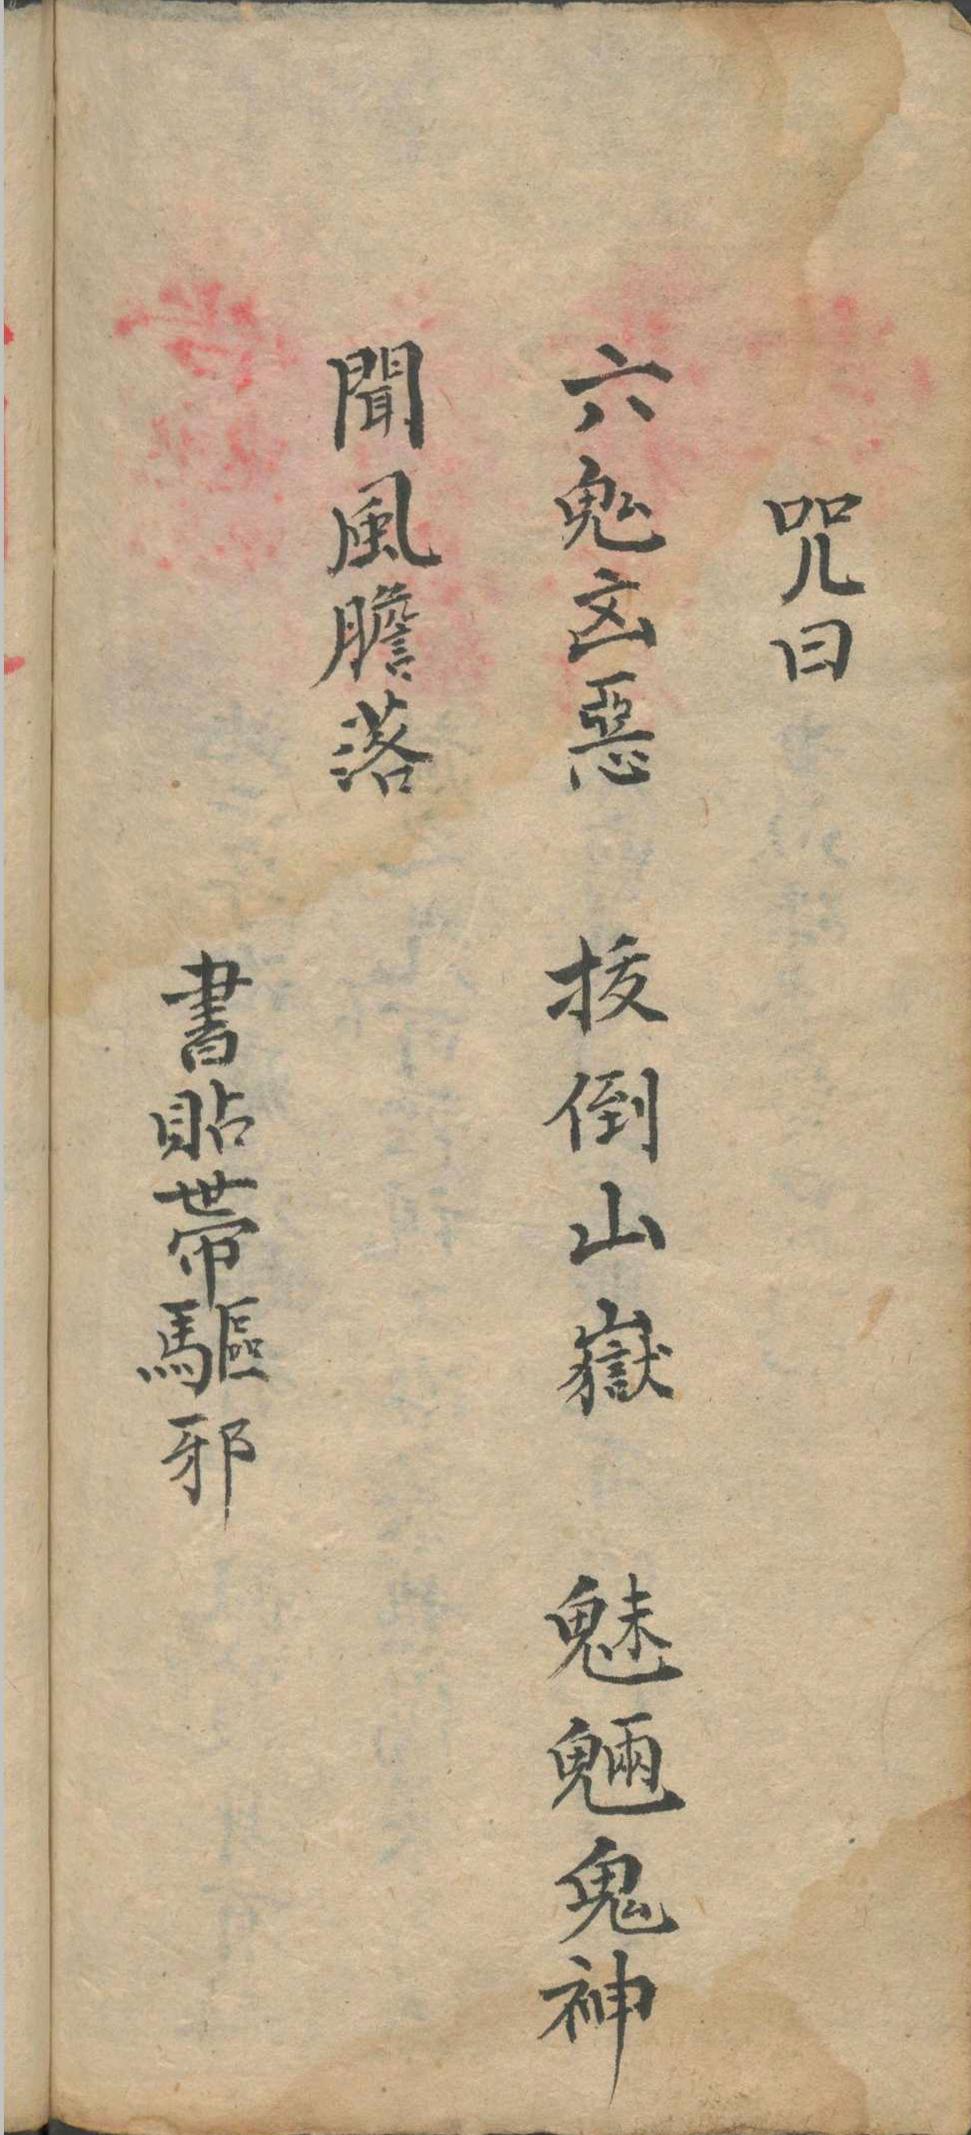 咒曰
六鬼凶惡　拔倒山嶽　魅魎鬼神
聞風膽落
書貼帶驅邪